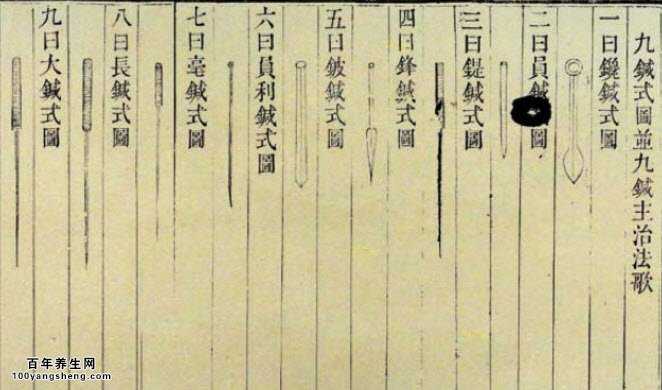 九鍼式圖並九鍼主治法歌
一曰鑱鍼式圖
二曰員鍼圖
三曰鍉鍼式圖
四曰鋒鍼式圖
五曰鈹鍼式圖
六曰員利鍼式圖
七曰毫鍼式圖
八曰長鍼式圖
九曰大鍼式圖
百年养生网
100yangsheng.com